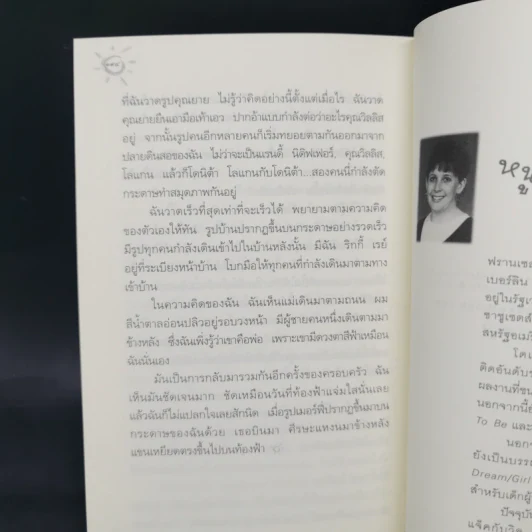 ที่ฉันวาดรูปคุณยาย ไม่รู้ว่าคิดอย่างนี้ตั้งแต่เมื่อไร ฉันวาด
คุณยายยืนเอามือเท้าเอว ปากอ้าแบบกำลังต่อว่าอะไรคุณวิลลิส
อยู่ จากนั้นรูปคนอีกหลายคนก็เริ่มทยอยตามกันออกมาจาก
ปลายดินสอของฉัน ไม่ว่าจะเป็นแรนดี้ นิคิฟเฟอร์, คุณวิลลิส,
โลแกน แล้วก็โตนิต้า โลแกนกับโตนิต้า...สองคนนี่กำลังตัด
กระดาษทำสมุดภาพกันอยู่
ฉันวาดเร็วที่สุดเท่าที่จะเร็วได้ พยายามตามความคิด
ของตัวเองให้ทัน รูปบ้านปรากฏขึ้นบนกระดาษอย่างรวดเร็ว
มีรูปทุกคนกำลังเดินเข้าไปในบ้านหลังนั้น มีฉัน ริกกี้ เรย์
อยู่ที่ระเบียงหน้าบ้าน โบกมือให้ทุกคนที่กำลังเดินมาตามทาง
เข้าบ้าน
ในความคิดของฉัน ฉันเห็นแม่เดินมาตามถนน ผม
สีน้ำตาลอ่อนปลิวอยู่รอบวงหน้า มีผู้ชายคนหนึ่งเดินตามมา
ข้างหลัง ซึ่งฉันเพิ่งรู้ว่าเขาคือพ่อ เพราะเขามีดวงตาสีฟ้าเหมือน
ฉันนั่นเอง
มันเป็นการกลับมารวมกันอีกครั้งของครอบครัว ฉัน
เห็นมันชัดเจนมาก ชัดเหมือนวันที่ท้องฟ้าแจ่มใสนั่นเลย
แล้วฉันก็ไม่แปลกใจเลยสักนิด เมื่อรูปเมอร์ฟี่ปรากฏขึ้นมาบน
กระดาษของฉันด้วย เธอบินมา ศีรษะแหงนมาข้างหลัง
แขนเหยียดตรงขึ้นไปบนท้องฟ้า
หนู
ฟรานเซส
เบอร์ลิน
อยู่ในรัฐ
ชาชูเซตส์
สหรัฐอเมริ
โด
ติดอันดับข
ผลงานที่ชน
นอกจากนี้ย
To Be และ
นอกจ
ยังเป็นบรรณ
Dream/Girl
สำหรับเด็กผู้
ปัจจุบั
แจ็คกับวิ